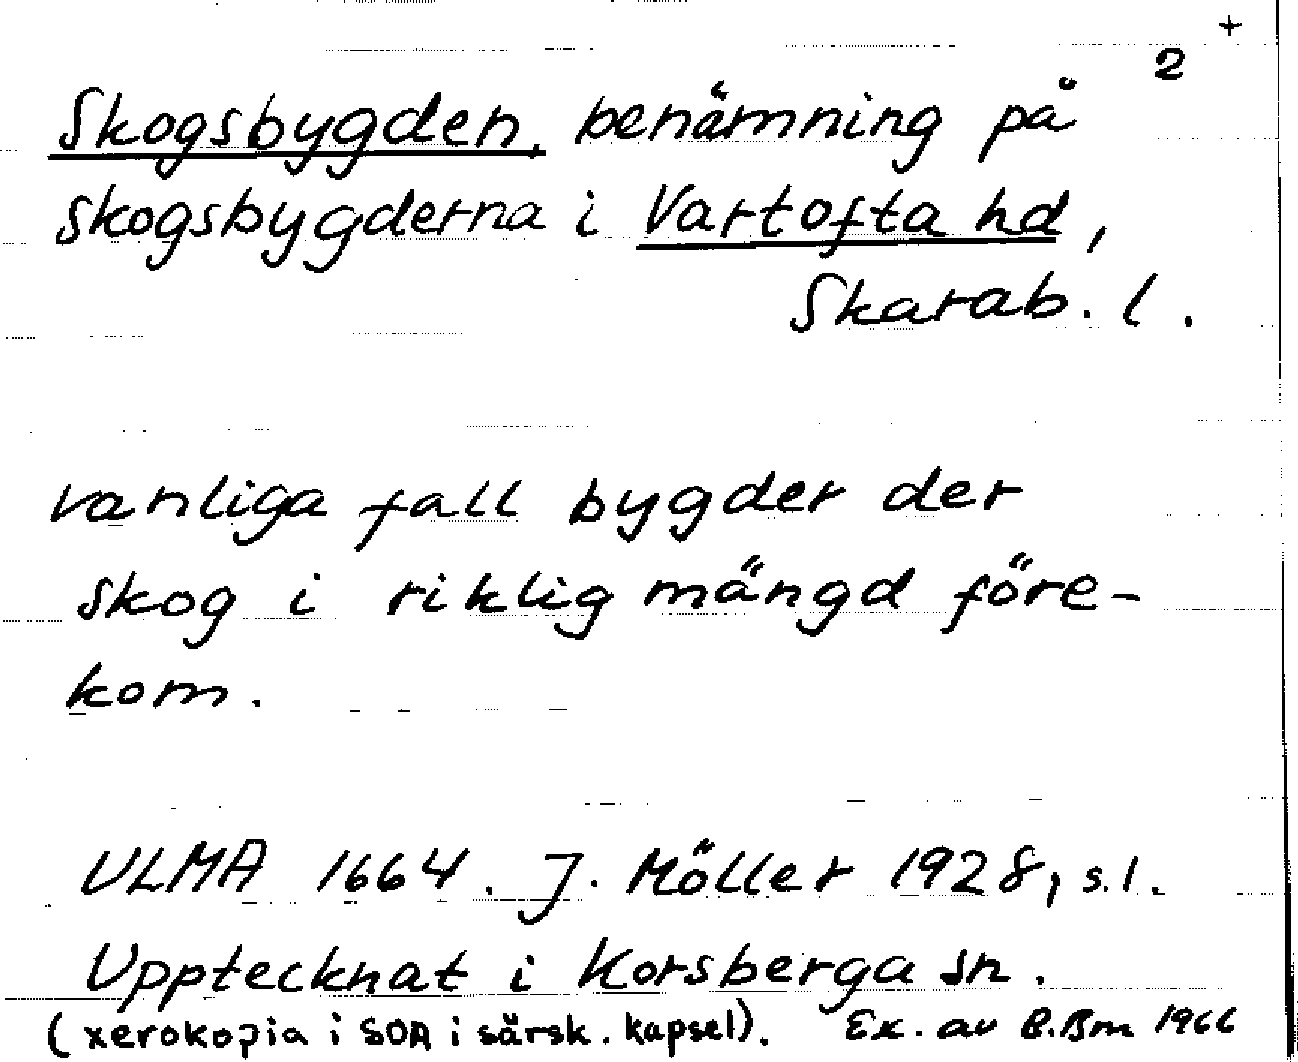 +
2
Skogsbygden, benämning på
skogsbygderna i Vartofta hd,
Skarab. l.
vanliga fall bygder der
skog i riklig mängd före-
kom.
ULMA 1664. J. Möller 1928, s. 1.
Upptecknat i Korsberga sn.
(xerokopia i SOA i särsk. kapsel). Ex. av B.Bm 1966